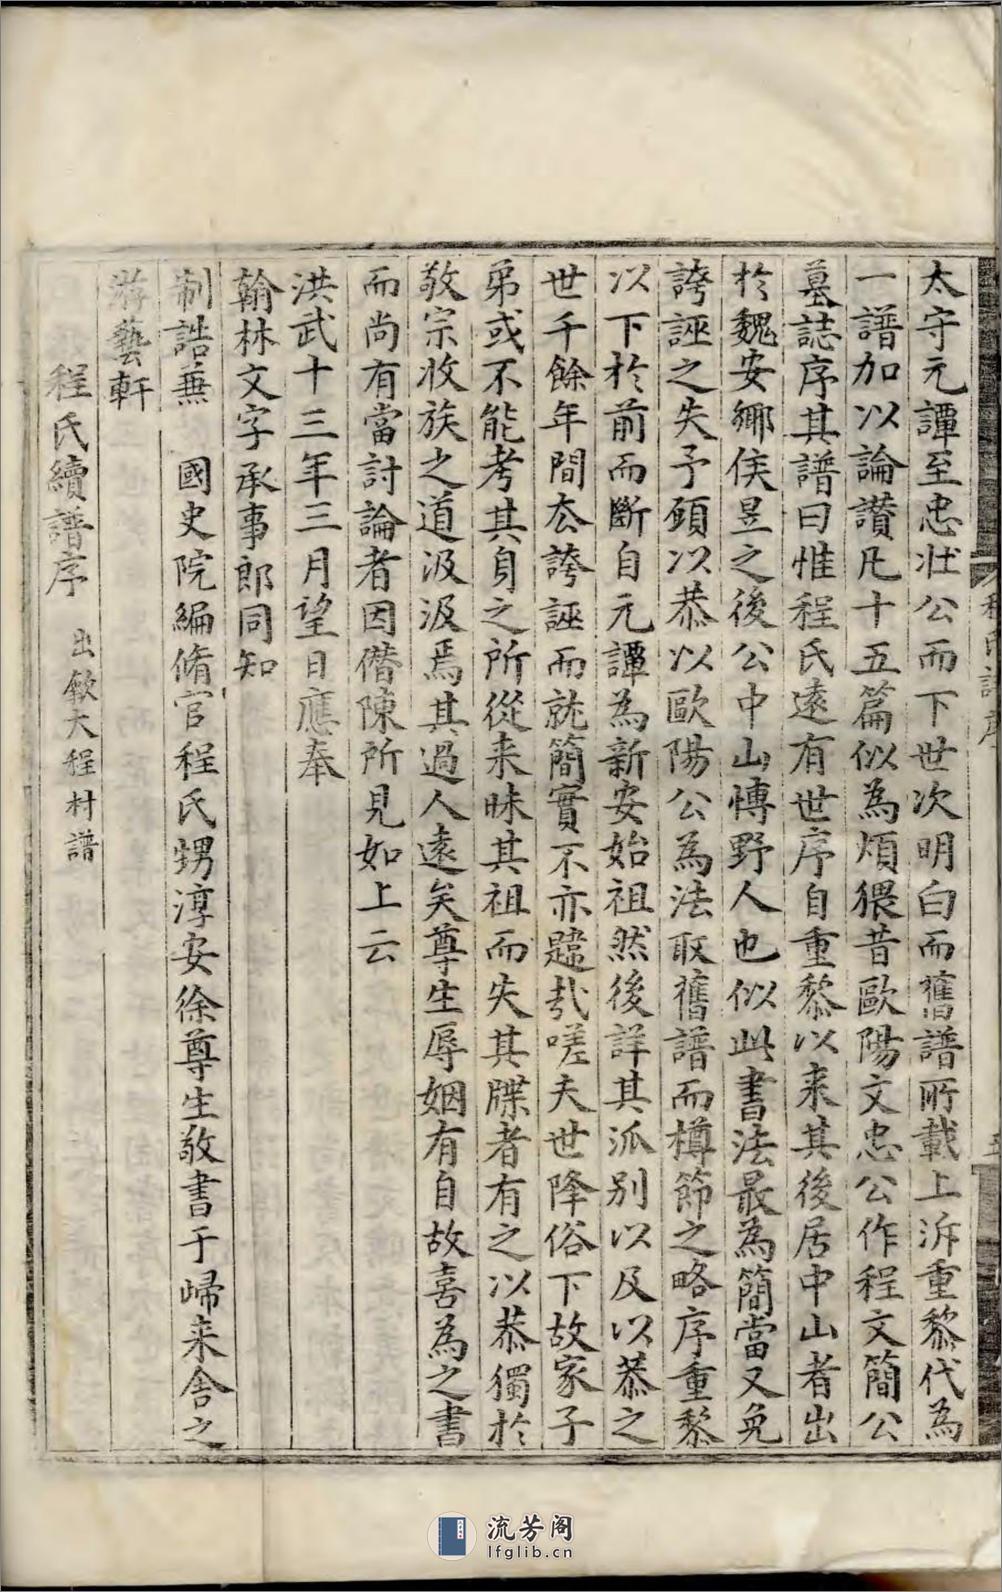 太守元譚至忠壯公而下世次明白而舊譜所載上泝重黎代為
一譜加以論讚凡十五篇似為煩猥昔歐陽文忠公作程文簡公
墓誌序其譜曰惟程氏遠有世序自重黎以来其後居中山者出
於魏安鄉侯昱之後公中山博野人也似此書法最為簡當又免
誇誣之失予願以恭以歐陽公為法取舊譜而樽節之略序重黎
以下於前而斷自元譚為新安始祖然後詳其派别以及以恭之
世千餘年間去誇誣而就簡實不亦韙㢤嗟夫世降俗下故家子
弟或不能考其身之所從来昧其祖而失其牒者有之以恭獨於
敬宗收族之道汲汲焉其過人遠矣尊生辱姻有自故喜為之書
而尚有當討論者因僭陳所見如上云
洪武十三年三月望日應奉
翰林文字承事郎同知
制誥兼 國史院編脩官程氏甥淳安徐尊生敬書于歸来舍之
游藝軒
程氏續譜序 出歙大程村譜
程氏譜序
流芳阁
lfglib.cn